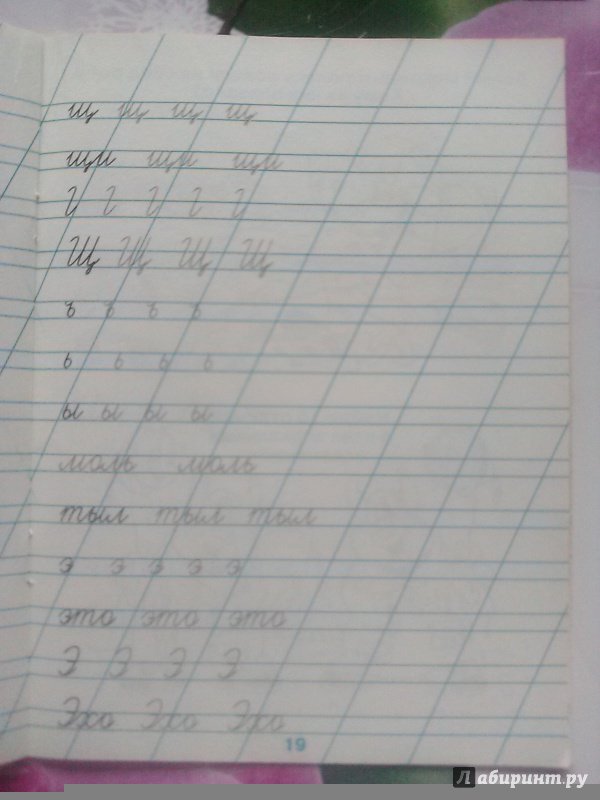 щ щ щ щ
щи щи щи
Щ Щ Щ Щ
ъ ъ ъ ъ
ь ь ь ь
ы ы ы ы
моль моль
тыл тыл тыл
э э э э э
это это это
Э Э Э Э
Эхо Эхо Эхо
19
Лабиринт.ру